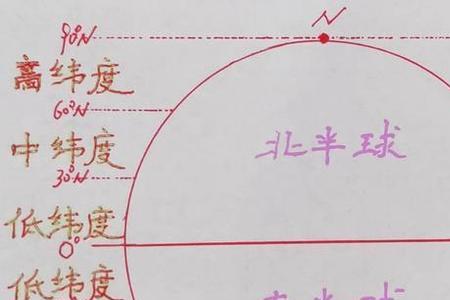 N
90°N
高纬度
60°N
中纬度
北半球
30°N
低纬度
0°
低纬度
南半球